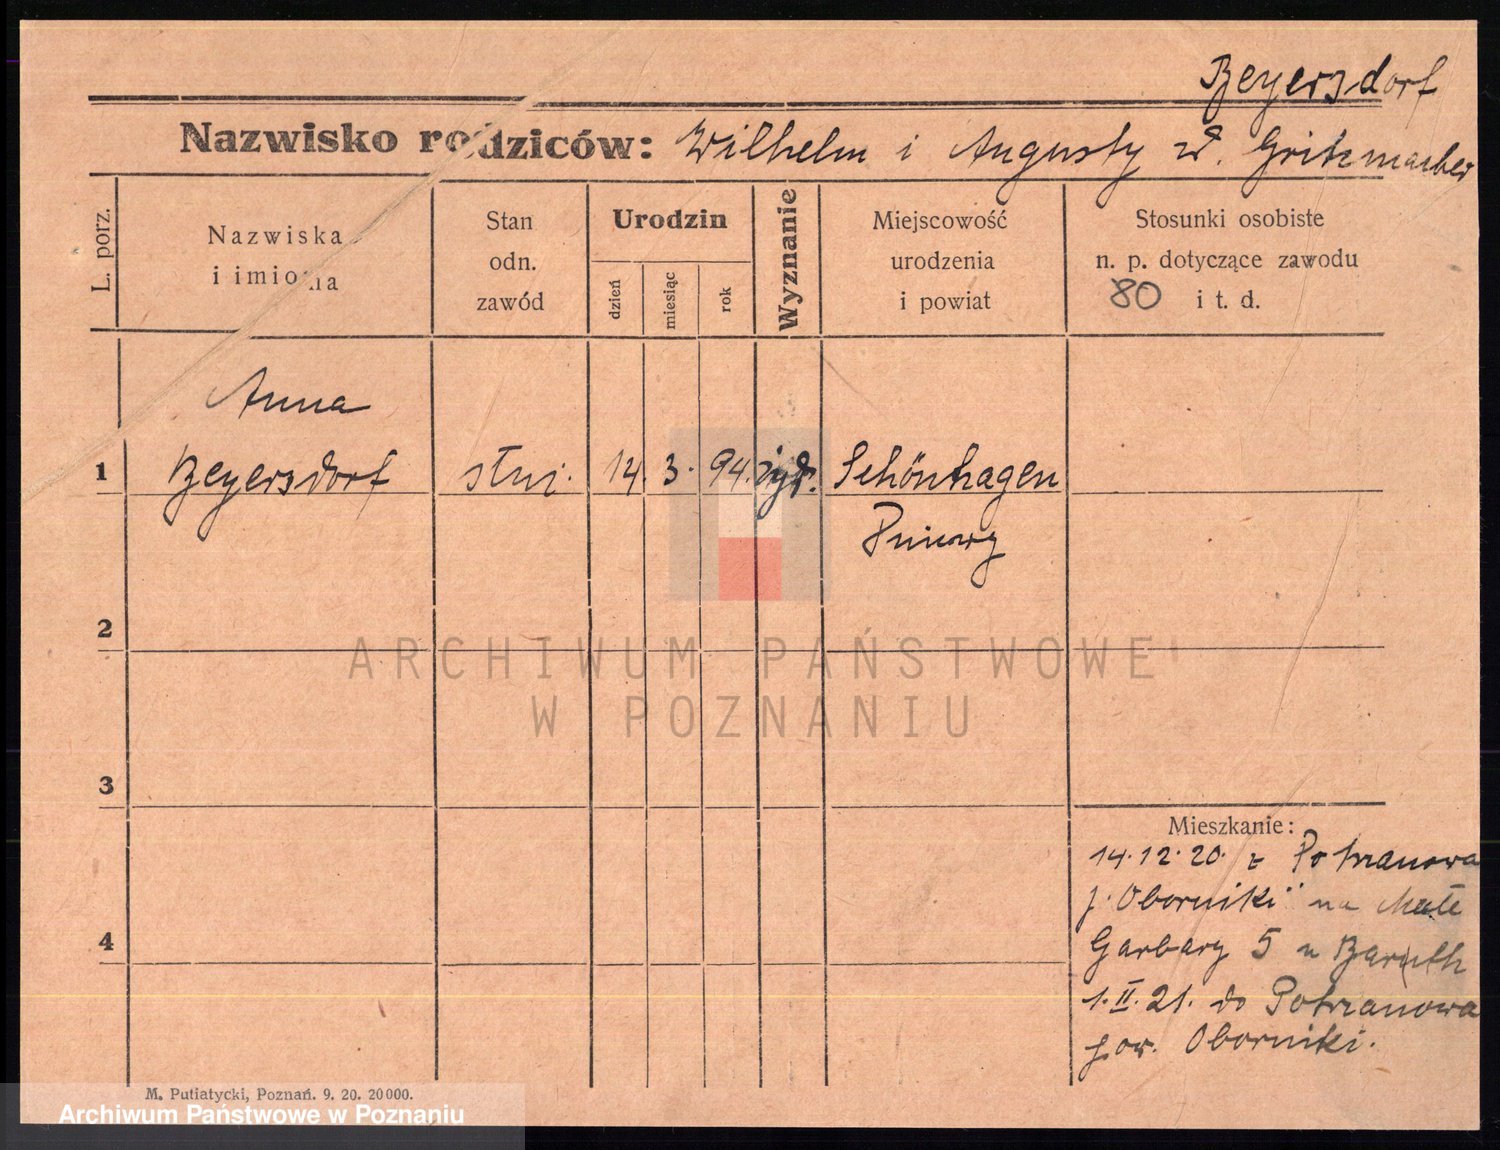 Beyersdorf
Nazwisko rodziców: Wilhelm i Augusty z d. Gritzmacher
L. porz.
Nazwiska
i imiona
Stan
odn.
zawód
Urodzin
dzień
miesiąc
rok
Wyznanie
Miejscowość
urodzenia
i powiat
Stosunki osobiste
n. p. dotyczące zawodu
80 i t. d.
Anna
1 Beyersdorf służ. 14. 3. 94. żyd. Schönhagen
Pniewy
2
ARCHIWUM PAŃSTWOWE
W POZNANIU
3
Mieszkanie:
14.12.20. z Potrzanowa
p. Oborniki na Małe
4
Garbary 5 u Baruth
1.II.21. do Potrzanowa
pow. Oborniki.
M. Putiatycki, Poznań. 9. 20. 20000.
Archiwum Państwowe w Poznaniu